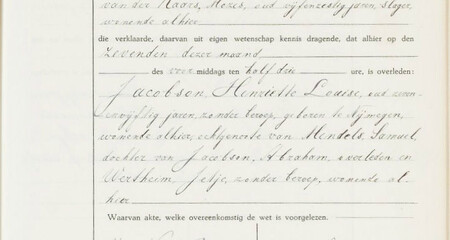 van der Kades, Mozes, oud vijfenzestig jaren, slager,
wonende alhier
die verklaarde, daarvan uit eigen wetenschap kennis dragende, dat alhier op den
zevenden dezer maand
des voor middags ten half drie ure, is overleden:
Jacobson, Henriette Louise, oud zeven
envijftig jaren, zonder beroep, geboren te Nijmegen,
wonende alhier, echtgenoote van Mendels, Samuel,
dochter van Jacobson, Abraham, overleden en
Wertheim, Jetje, zonder beroep, wonende al-
hier
Waarvan akte, welke overeenkomstig de wet is voorgelezen.